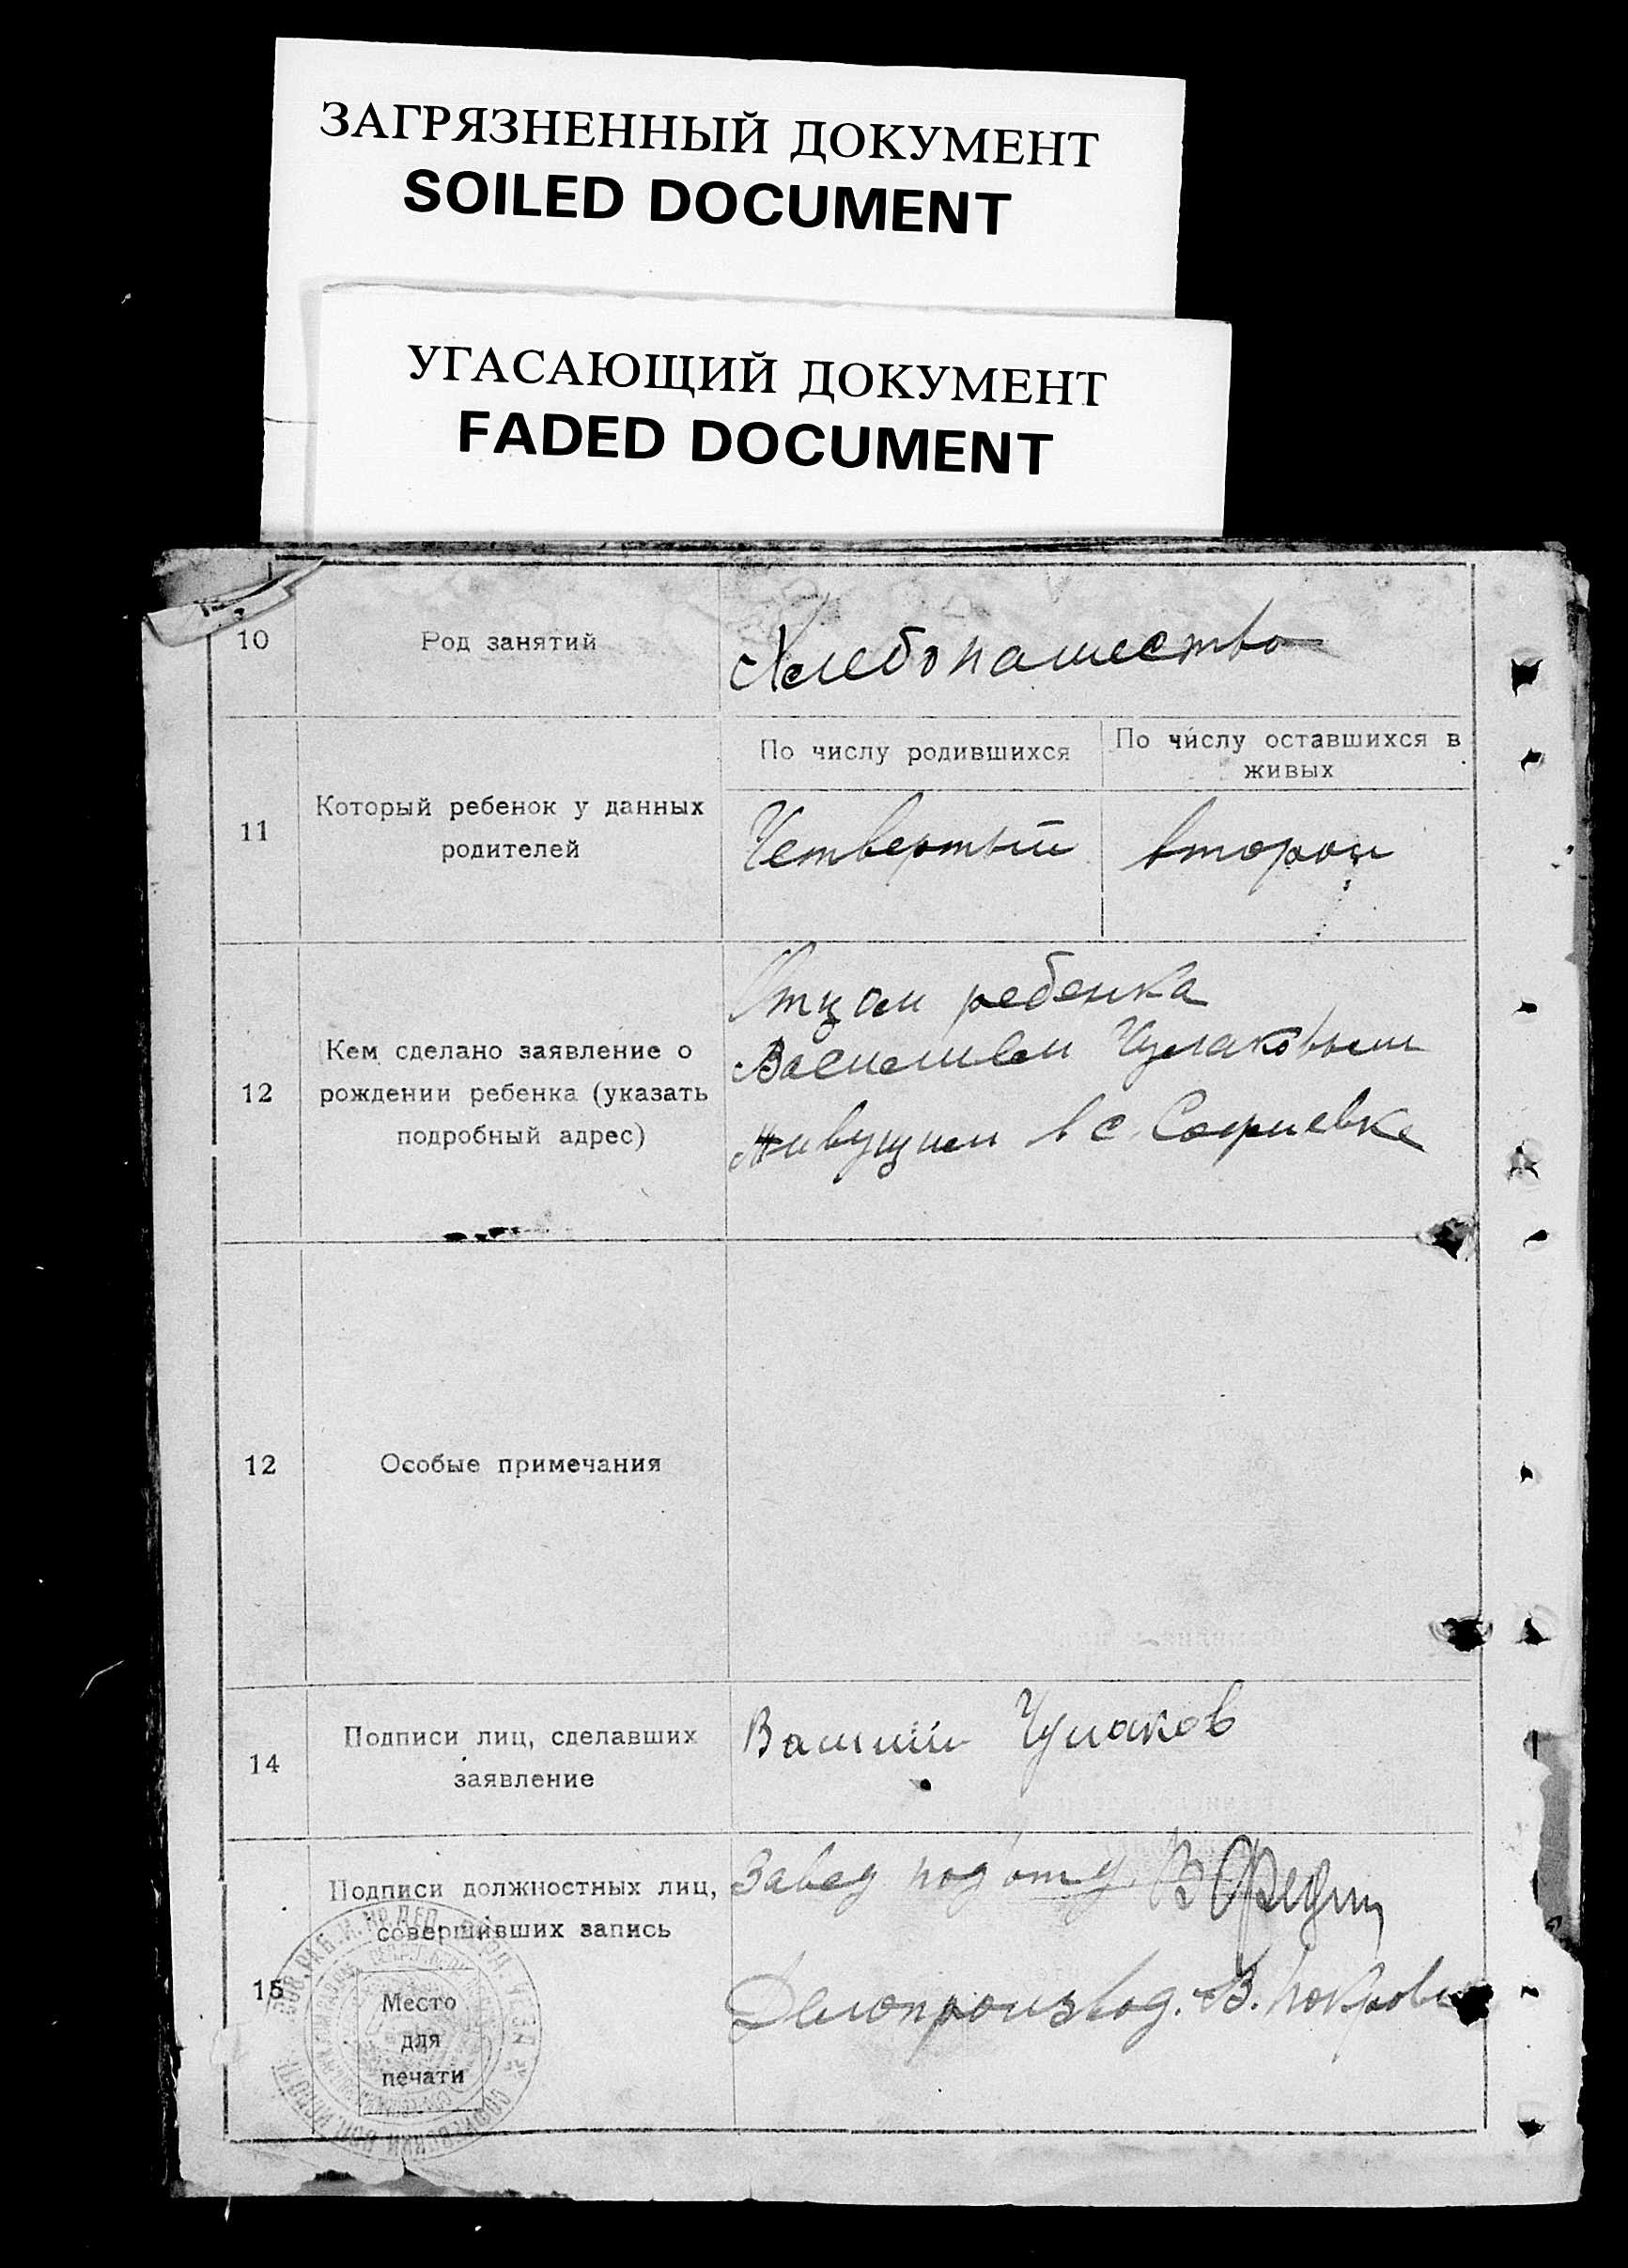 ЗАГРЯЗНЕННЫЙ ДОКУМЕНТ
SOILED DOCUMENT
УГАСАЮЩИЙ ДОКУМЕНТ
FADED DOCUMENT
10
Род занятий
Хлебопашество
11
Который ребенок у данных
родителей
По числу родившихся
По числу оставшихся в
живых
Четвертый
второй
12
Кем сделано заявление о
рождении ребенка (указать
подробный адрес)
Отцом ребенка
Василием Чумаковым
живущим в с. Софиевке
12
Особые примечания
14
Подписи лиц, сделавших
заявление
Василий Чумаков
15
Подписи должностных лиц,
совершивших запись
Место
для
печати
Завед подотд.
Делопроизвод. В.